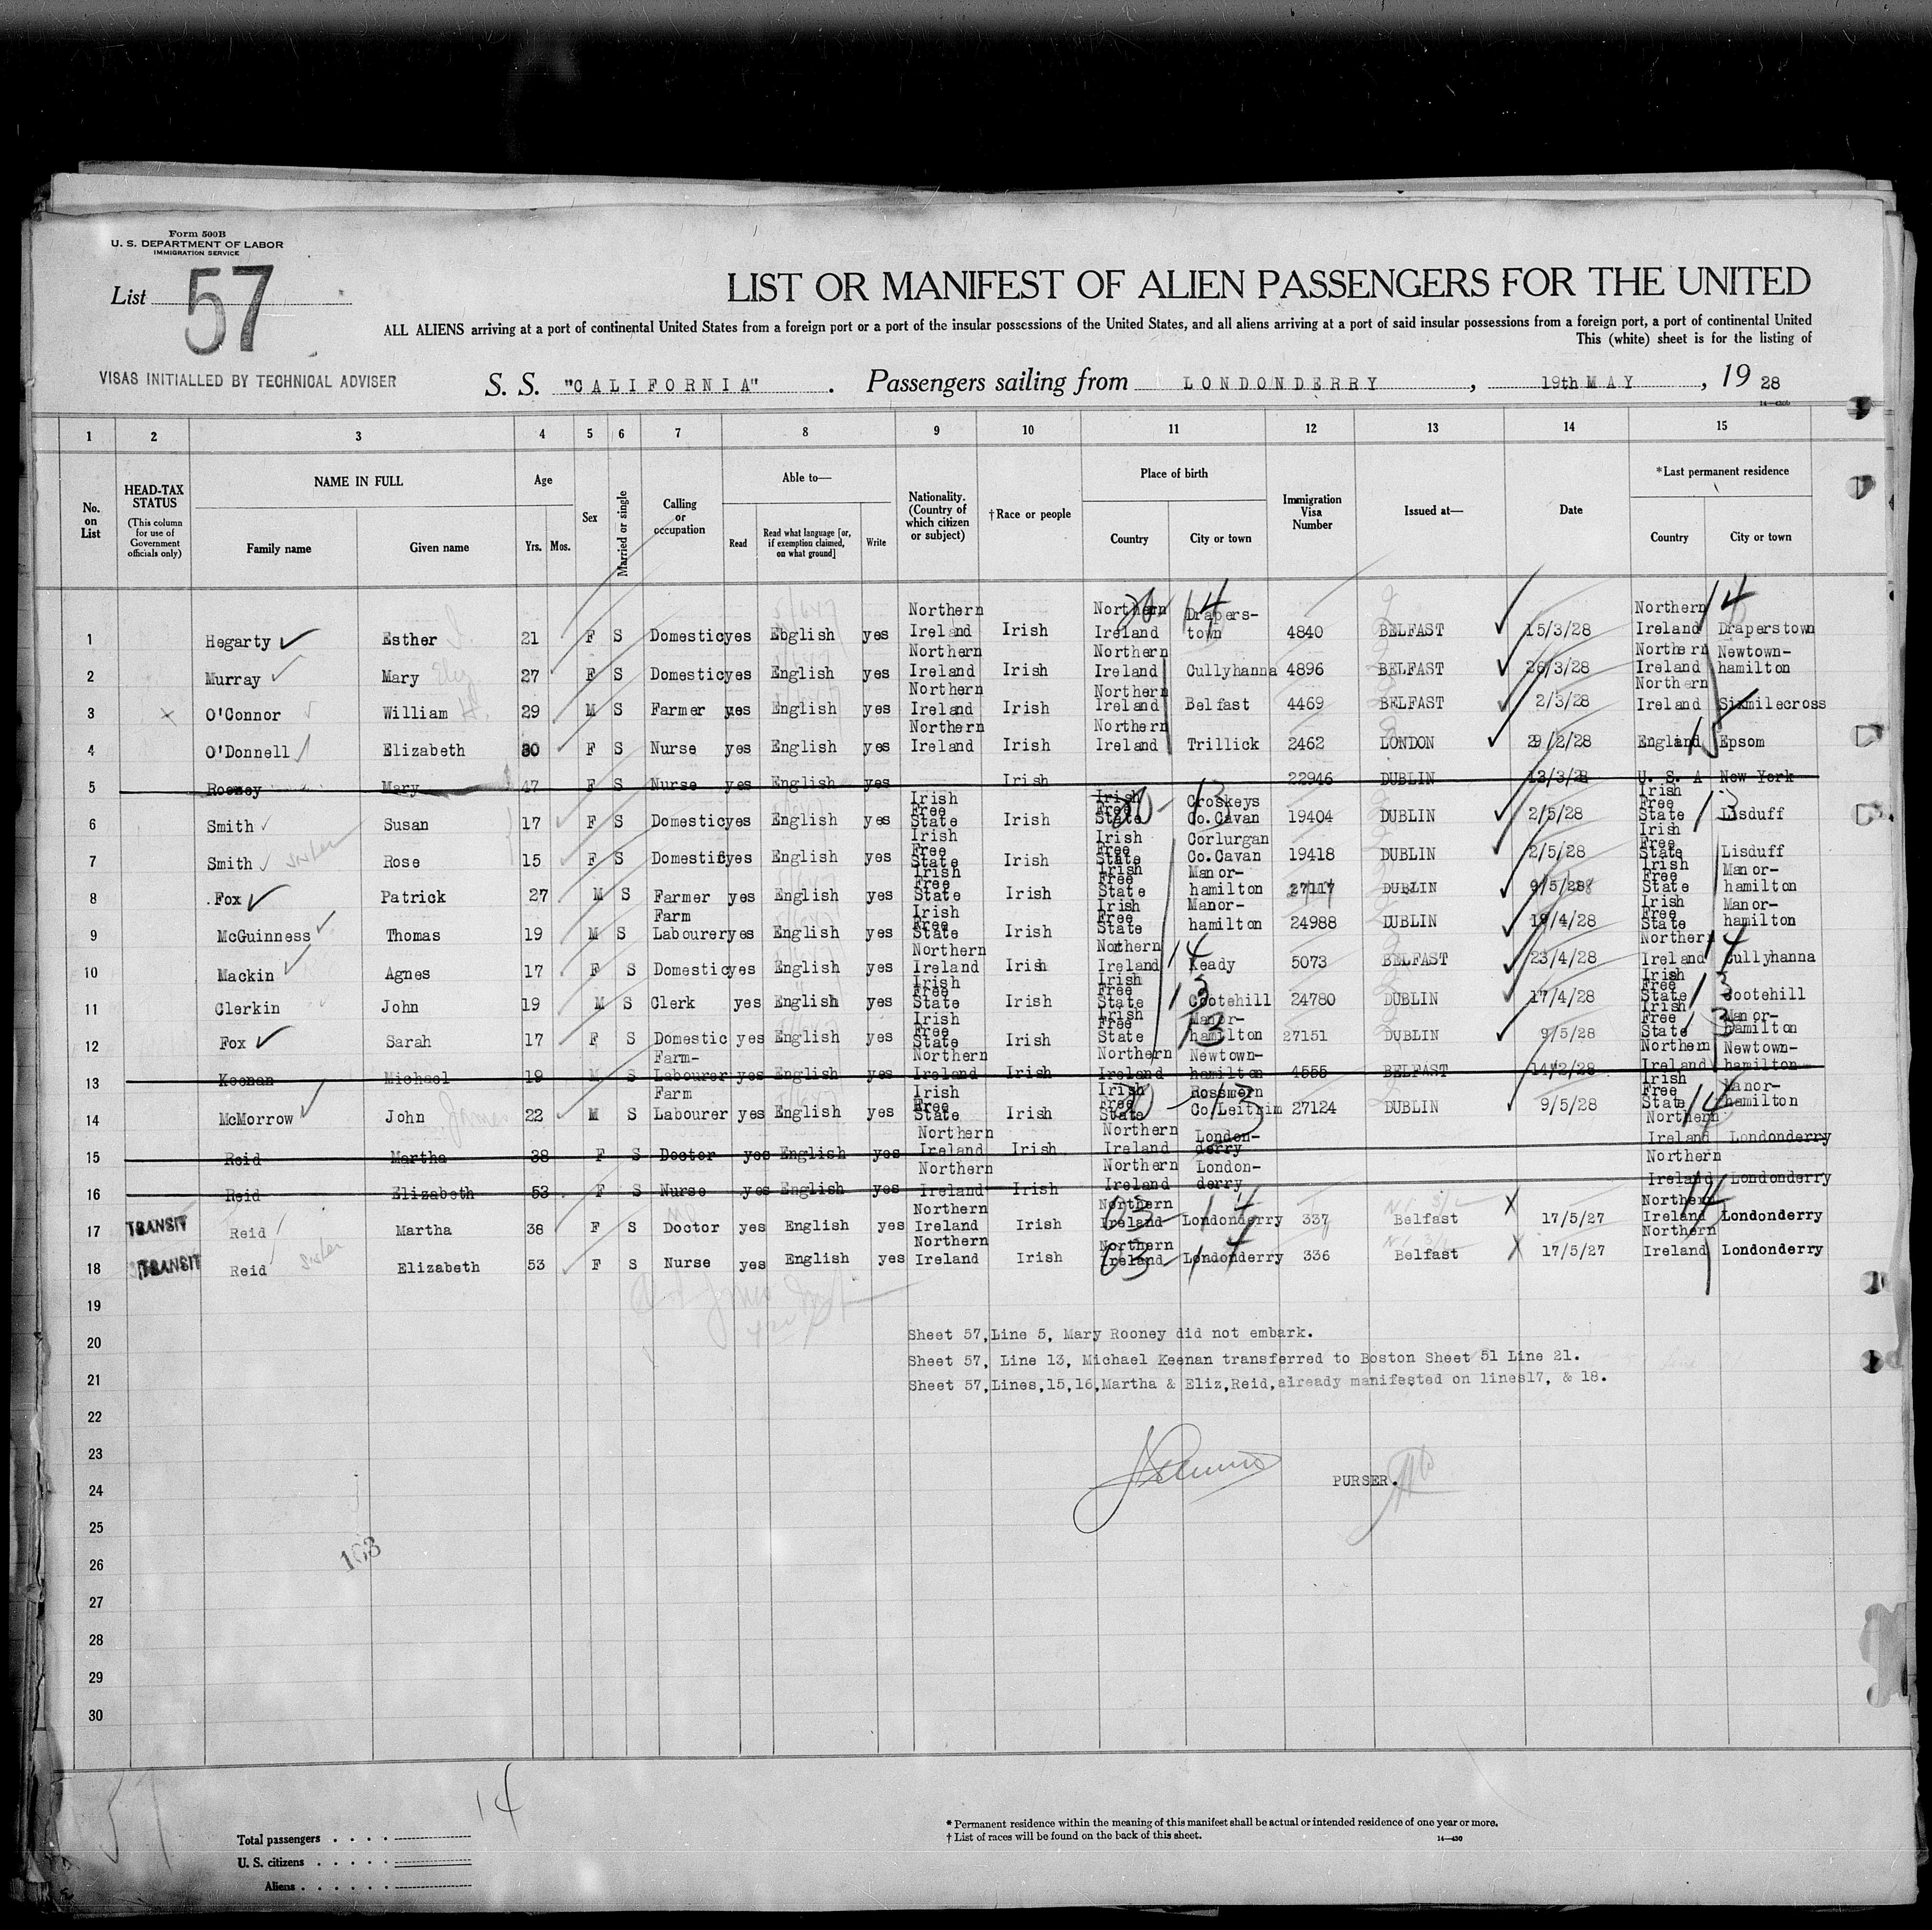 Form 500B
U. S. DEPARTMENT OF LABOR
IMMIGRATION SERVICE
List 57
LIST OR MANIFEST OF ALIEN PASSENGERS FOR THE UNITED
ALL ALIENS arriving at a port of continental United States from a foreign port or a port of the insular possessions of the United States, and all aliens arriving at a port of said insular possessions from a foreign port, a port of continental United
This (white) sheet is for the listing of
VISAS INITIALLED BY TECHNICAL ADVISER
S. S. "CALIFORNIA". Passengers sailing from LONDONDERRY, 19th MAY, 19 28
14—430b
1 2 3 4 5 6 7 8 9 10 11 12 13 14 15
No. on List
HEAD-TAX STATUS (This column for use of Government officials only)
NAME IN FULL
Family name Given name
Age
Yrs. Mos.
Sex
Married or single
Calling or occupation
Able to—
Read Read what language [or, if exemption claimed, on what ground] Write
Nationality. (Country of which citizen or subject)
†Race or people
Place of birth
Country City or town
Immigration Visa Number
Issued at—
Date
*Last permanent residence
Country City or town
1 Hegarty Esther 21 F S Domestic yes Ebglish yes Northern Ireland Irish Northern Ireland Drapers-town 4840 BELFAST 15/3/28 Northern Ireland Draperstown
2 Murray Mary 27 F S Domestic yes English yes Northern Ireland Irish Northern Ireland Cullyhanna 4896 BELFAST 26/3/28 Northern Ireland Newtown-hamilton
3 O'Connor William 29 M S Farmer yes English yes Northern Ireland Irish Northern Ireland Belfast 4469 BELFAST 2/3/28 Northern Ireland Sixmilecross
4 O'Donnell Elizabeth 30 F S Nurse yes English yes Northern Ireland Irish Northern Ireland Trillick 2462 LONDON 29/2/28 England Epsom
5 Rooney Mary 47 F S Nurse yes English yes Irish 22946 DUBLIN 13/3/28 U. S. A New York
6 Smith Susan 17 F S Domestic yes English yes Irish Free State Irish Irish Free State Croskeys Co.Cavan 19404 DUBLIN 2/5/28 Irish Free State Lisduff
7 Smith sister Rose 15 F S Domestic yes English yes Irish Free State Irish Irish Free State Corlurgan Co.Cavan 19418 DUBLIN 2/5/28 Irish Free State Lisduff
8 Fox Patrick 27 M S Farmer yes English yes Irish Free State Irish Irish Free State Manor-hamilton 27117 DUBLIN 9/5/28 Irish Free State Manor-hamilton
9 McGuinness Thomas 19 M S Farm Labourer yes English yes Irish Free State Irish Irish Free State Manor-hamilton 24988 DUBLIN 19/4/28 Irish Free State Manor-hamilton
10 Mackin Agnes 17 F S Domestic yes English yes Northern Ireland Irish Northern Ireland Keady 5073 BELFAST 23/4/28 Northern Ireland Cullyhanna
11 Clerkin John 19 M S Clerk yes English yes Irish Free State Irish Irish Free State Cootehill 24780 DUBLIN 17/4/28 Irish Free State Cootehill
12 Fox Sarah 17 F S Domestic yes English yes Irish Free State Irish Irish Free State Manor-hamilton 27151 DUBLIN 9/5/28 Irish Free State Manor-hamilton
13 Keenan Michael 19 M S Farm-Labourer yes English yes Northern Ireland Irish Northern Ireland Newtown-hamilton 4555 BELFAST 14/2/28 Northern Ireland Newtown-hamilton
14 McMorrow John James 22 M S Farm Labourer yes English yes Irish Free State Irish Irish Free State Rossmern Co Leitrim 27124 DUBLIN 9/5/28 Irish Free State Manor-hamilton
15 Reid Martha 38 F S Doctor yes English yes Northern Ireland Irish Northern Ireland London-derry Northern Ireland Londonderry
16 Reid Elizabeth 53 F S Nurse yes English yes Northern Ireland Irish Northern Ireland London-derry Northern Ireland Londonderry
17 TRANSIT Reid Martha 38 F S Doctor yes English yes Northern Ireland Irish Northern Ireland Londonderry 337 Belfast 17/5/27 Northern Ireland Londonderry
18 TRANSIT Reid sister Elizabeth 53 F S Nurse yes English yes Northern Ireland Irish Northern Ireland Londonderry 336 Belfast 17/5/27 Northern Ireland Londonderry
19
20 Sheet 57,Line 5, Mary Rooney did not embark.
Sheet 57, Line 13, Michael Keenan transferred to Boston Sheet 51 Line 21.
21 Sheet 57,Lines,15,16,Martha & Eliz,Reid,already manifested on lines17, & 18.
22
23
24 PURSER.
25
26 103
27
28
29
30
57
14
Total passengers
U. S. citizens
Aliens
*Permanent residence within the meaning of this manifest shall be actual or intended residence of one year or more.
†List of races will be found on the back of this sheet.
14—430